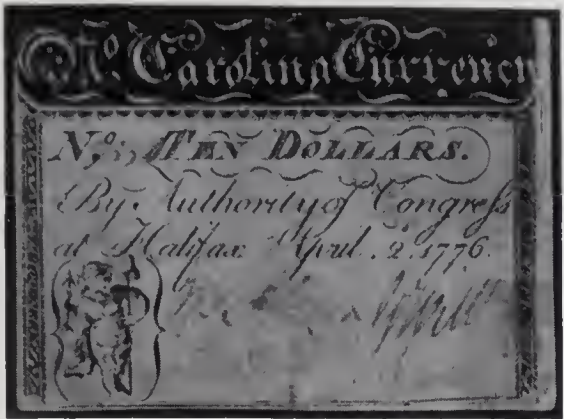 No. Carolina Currency
No. TEN DOLLARS.
By Authority of Congress
at Halifax April. 2. 1776.